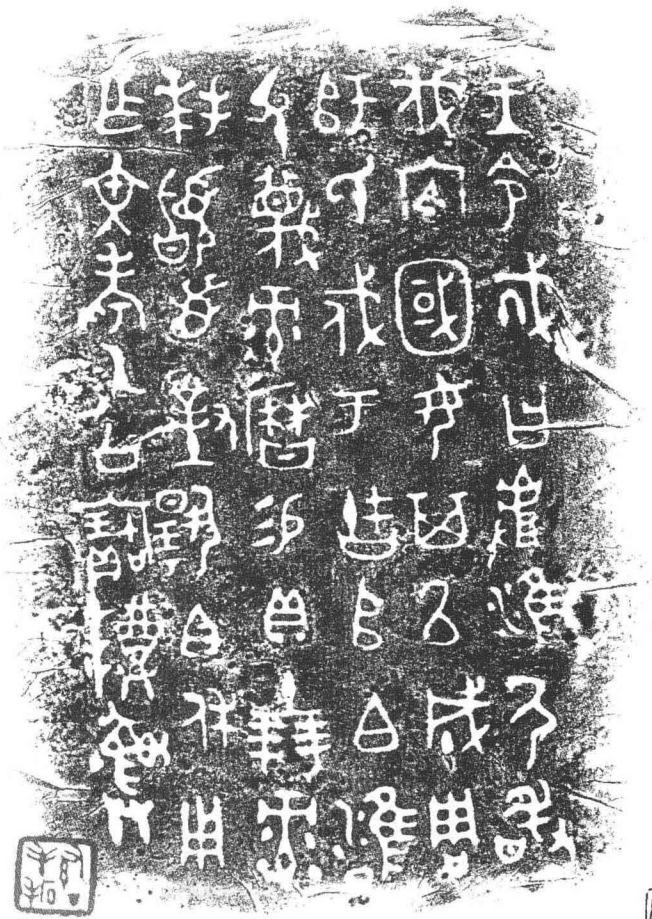 王令𢦚曰𠭯淮尸敢
伐内國女其以成周
師氏戍于𠰻𠂤白雝
父蔑彔曆易貝十朋彔
拜𩒨首對揚白休用
乍文考乙公寶𬯚彝